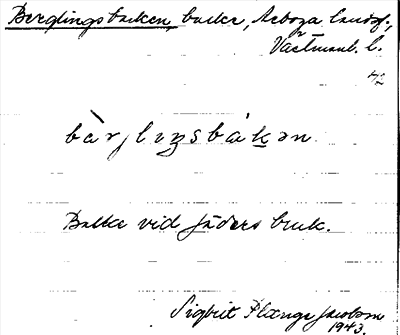 Berglingsbacken, backe, Arboga landsf.,
Västmanl. l.
bàrjlıŋsbákən.
Backe vid Jäders bruk.
Sigbrit Plænge Jacobson
1943.